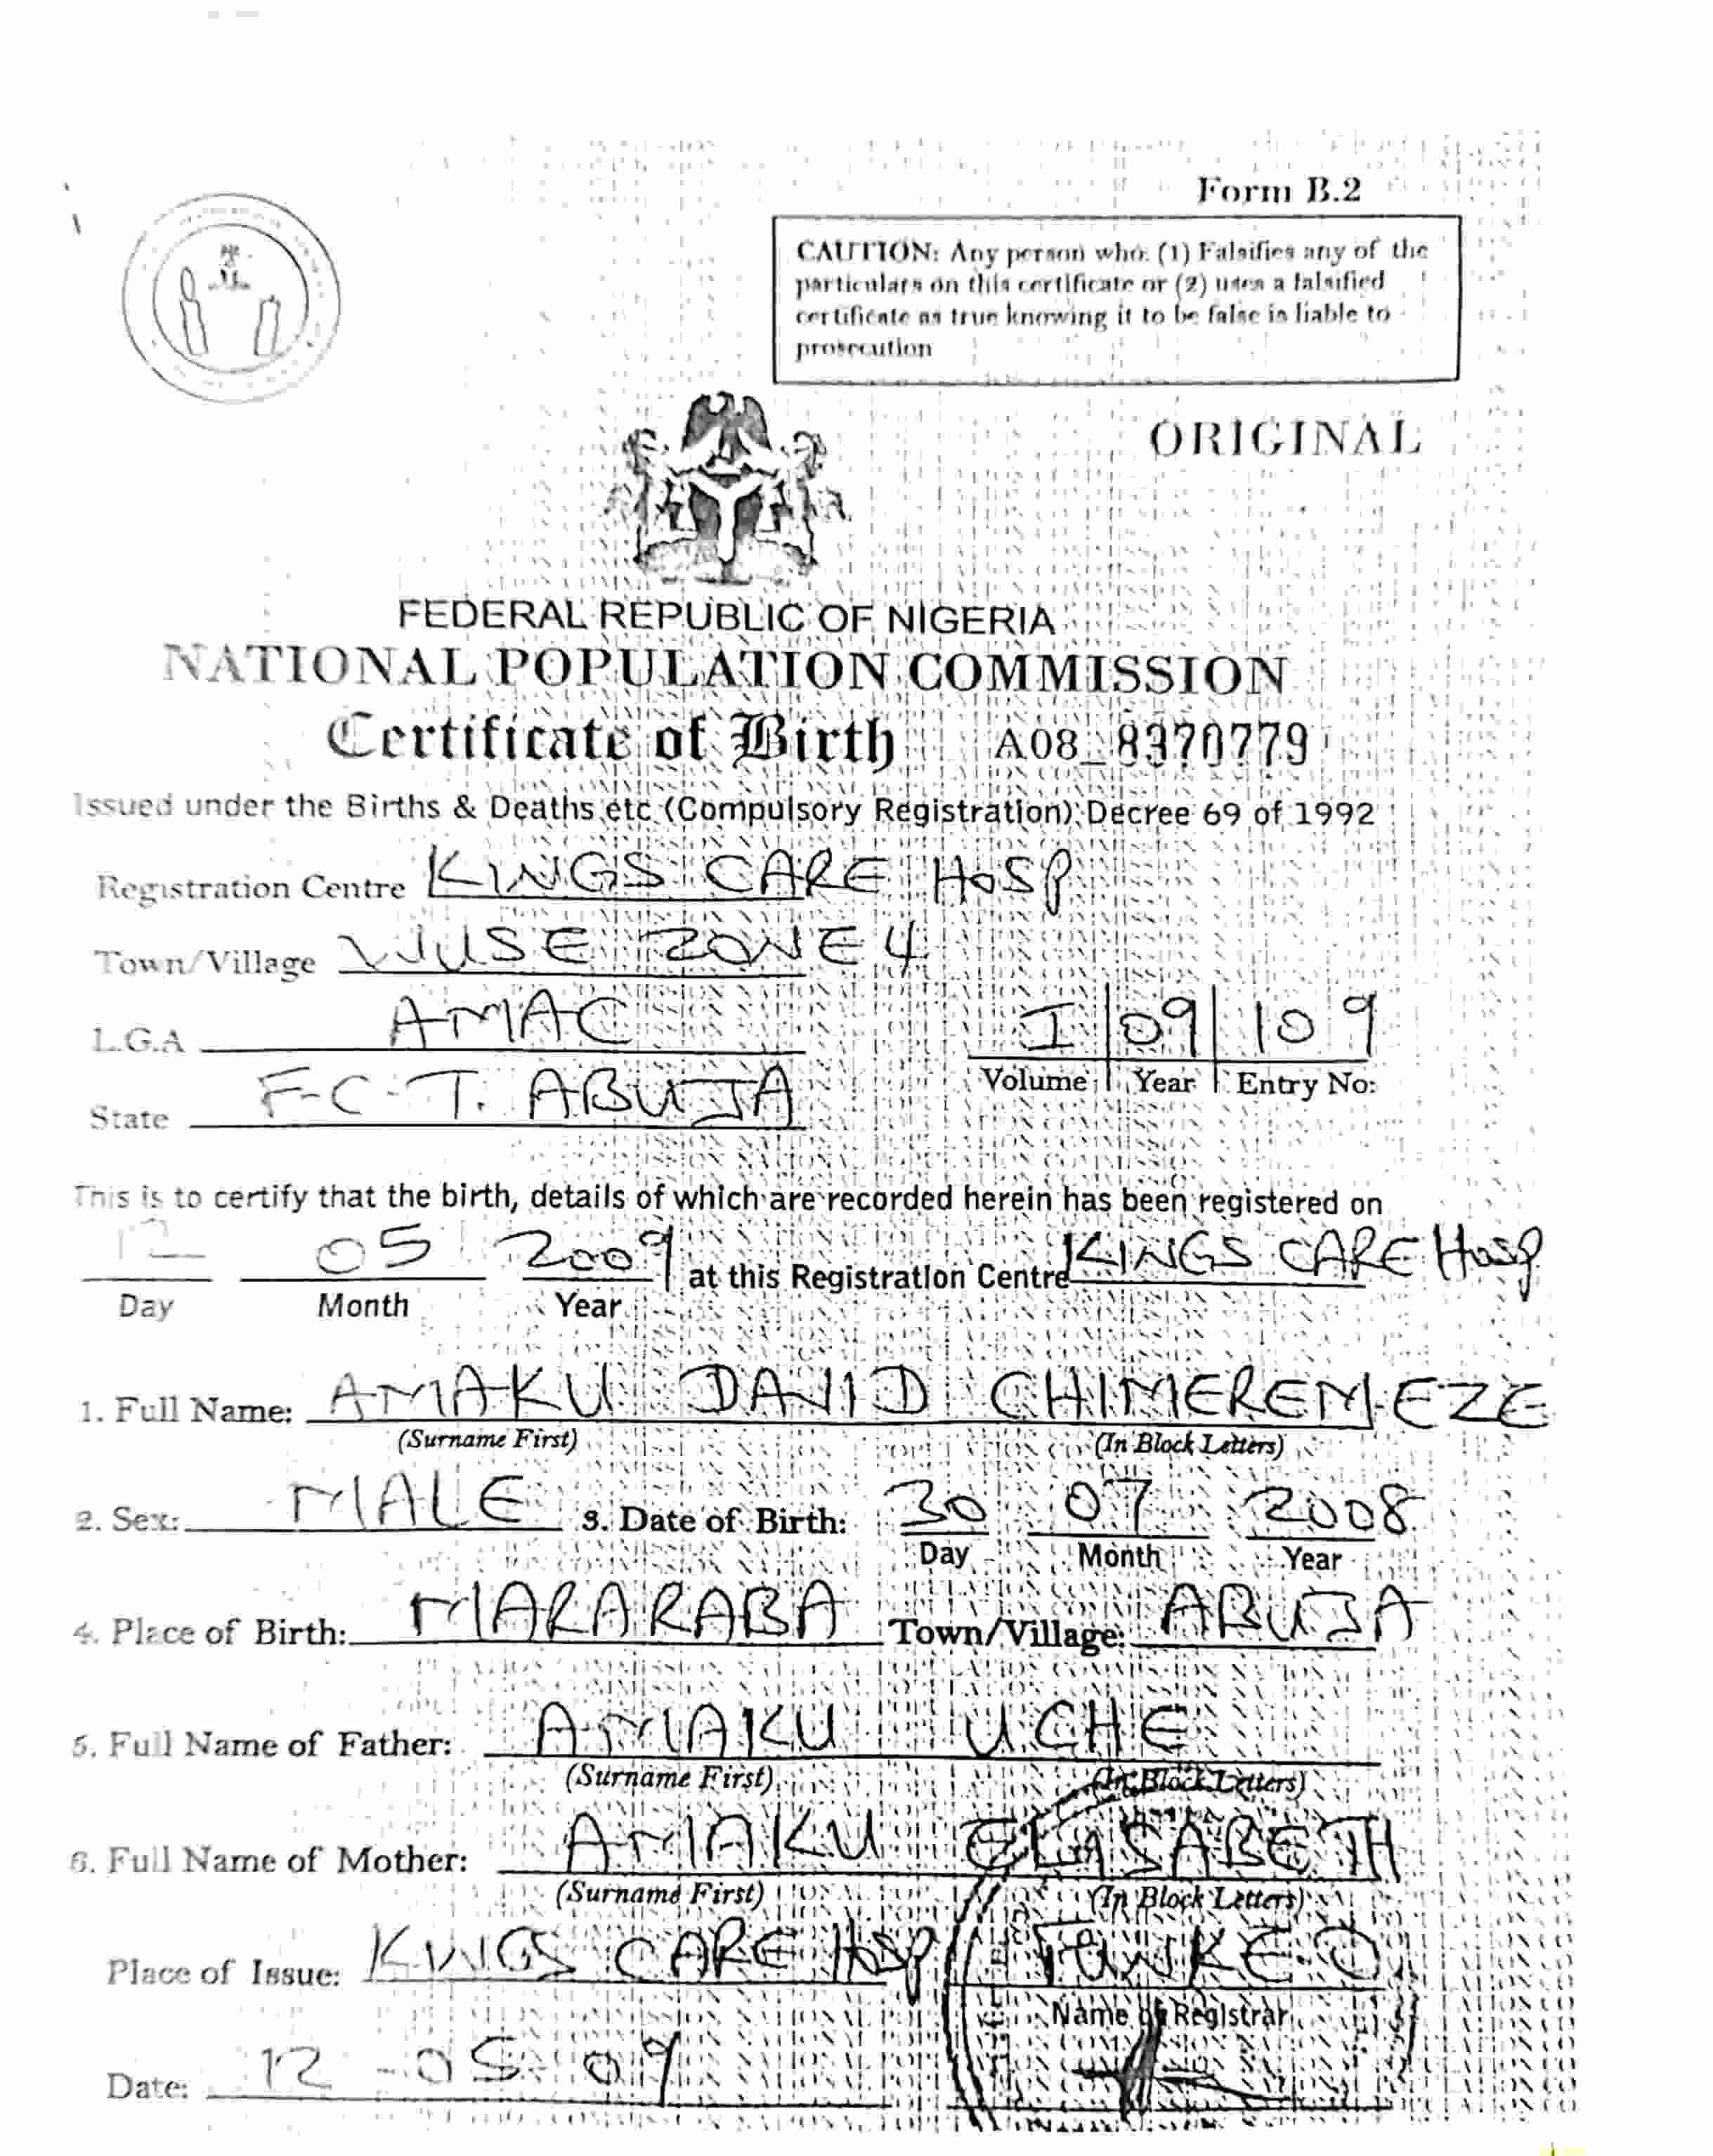 Form B.2
CAUTION: Any person who: (1) Falsifies any of the
particulars on this certificate or (2) uses a falsified
certificate as true knowing it to be false is liable to
prosecution
ORIGINAL
FEDERAL REPUBLIC OF NIGERIA
NATIONAL POPULATION COMMISSION
Certificate of Birth A08_8370779
Issued under the Births & Deaths etc (Compulsory Registration) Decree 69 of 1992
Registration Centre KINGS CARE HOSP
Town/Village WUSE ZONE 4
L.G.A AMAC
I 09 109
Volume Year Entry No:
State F.C.T. ABUJA
This is to certify that the birth, details of which are recorded herein has been registered on
12 05 2009 at this Registration Centre KINGS CARE Hosp
Day Month Year
1. Full Name: AMAKU DAVID CHIMEREMEZE
(Surname First) (In Block Letters)
2. Sex: MALE 3. Date of Birth: 30 07 2008
Day Month Year
4. Place of Birth: MARARABA Town/Village: ABUJA
5. Full Name of Father: AMAKU UCHE
(Surname First) (In Block Letters)
6. Full Name of Mother: AMAKU ELISABETH
(Surname First) (In Block Letters)
Place of Issue: KINGS CARE Hosp FUNKE O.
Name of Registrar
Date: 12-05-09